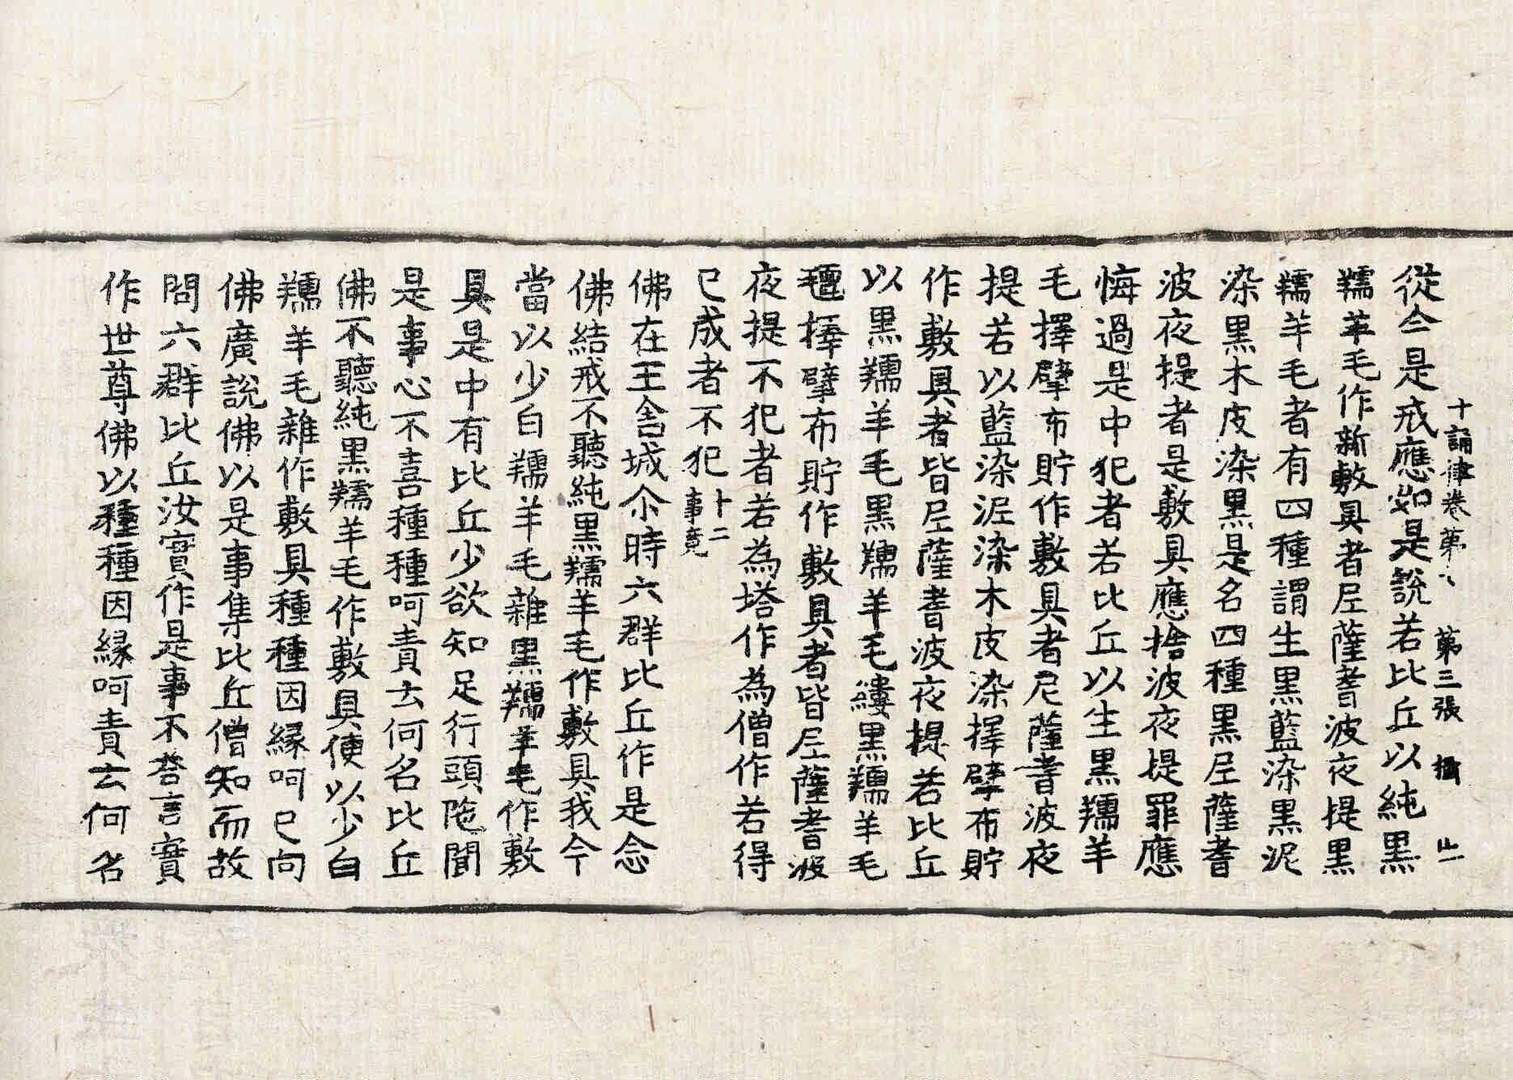 十誦律卷第八　第三張　攝　
從今是戒應如是說若比丘以純黑
羺羊毛作新敷具者尼薩耆波夜提黑
羺羊毛者有四種謂生黑藍染黑泥
染黑木皮染黑是名四種黑尼薩耆
波夜提者是敷具應捨波夜提罪應
悔過是中犯者若比丘以生黑羺羊
毛擇擘布貯作敷具者尼薩耆波夜
提若以藍染泥染木皮染擇擘布貯
作敷具者皆尼薩耆波夜提若比丘
以黑羺羊毛黑羺羊毛縷黑羺羊毛
毱擇擘布貯作敷具者皆尼薩耆波
夜提不犯者若為塔作為僧作若得
已成者不犯十二事竟
佛在王舍城尒時六群比丘作是念
佛結戒不聽純黑羺羊毛作敷具我今
當以少白羺羊毛雜黑羺羊毛作敷
具是中有比丘少欲知足行頭陁聞
是事心不喜種種呵責云何名比丘
佛不聽純黑羺羊毛作敷具便以少白
羺羊毛雜作敷具種種因緣呵已向
佛廣說佛以是事集比丘僧知而故
問六群比丘汝實作是事不荅言實
作世尊佛以種種因緣呵責云何名